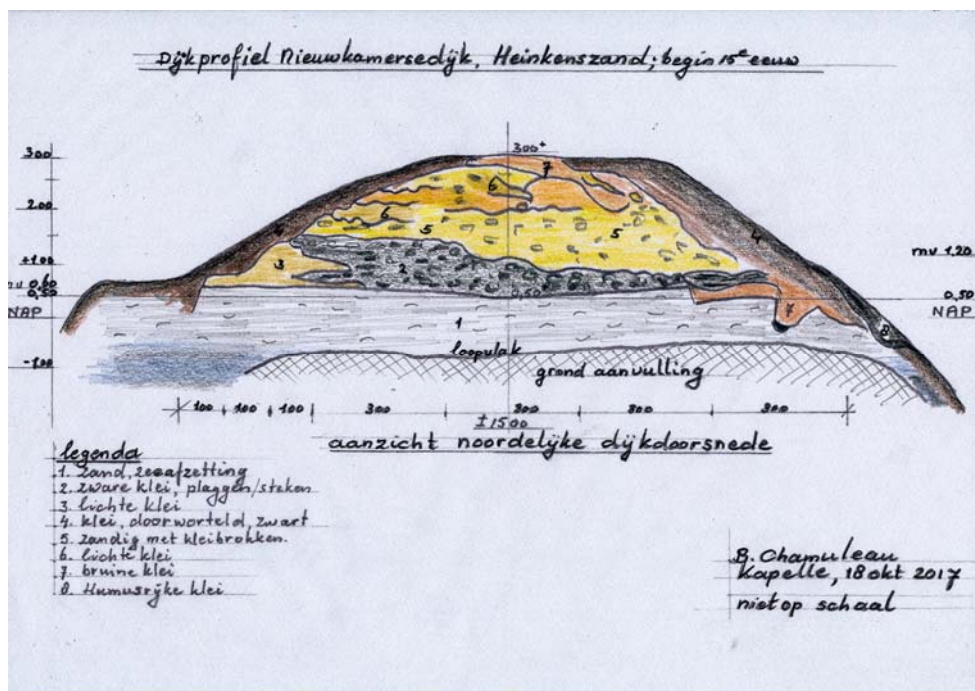 Dijkprofiel Nieuwkamersedijk, Heinkenszand; begin 15e eeuw
300
300+
7
6
200
6
5
5
4
+100
3
2
mv 1,20
mv 0,60
0,50
0,50
0,50
NAP
NAP
7
1
8
loopvlak
-100
grond aanvulling
100 100 100 300 300 300 300
±1500
aanzicht noordelijke dijkdoorsnede
legenda
1. Zand, zeeafzetting
2. zware klei, plaggen/steken
3. lichte klei
4. klei, doorworteld, zwart
5. zandig met kleibrokken.
6. lichte klei
7. bruine klei
8. Humusrijke klei
B. Chamuleau
Kapelle, 18 okt 2017
niet op schaal